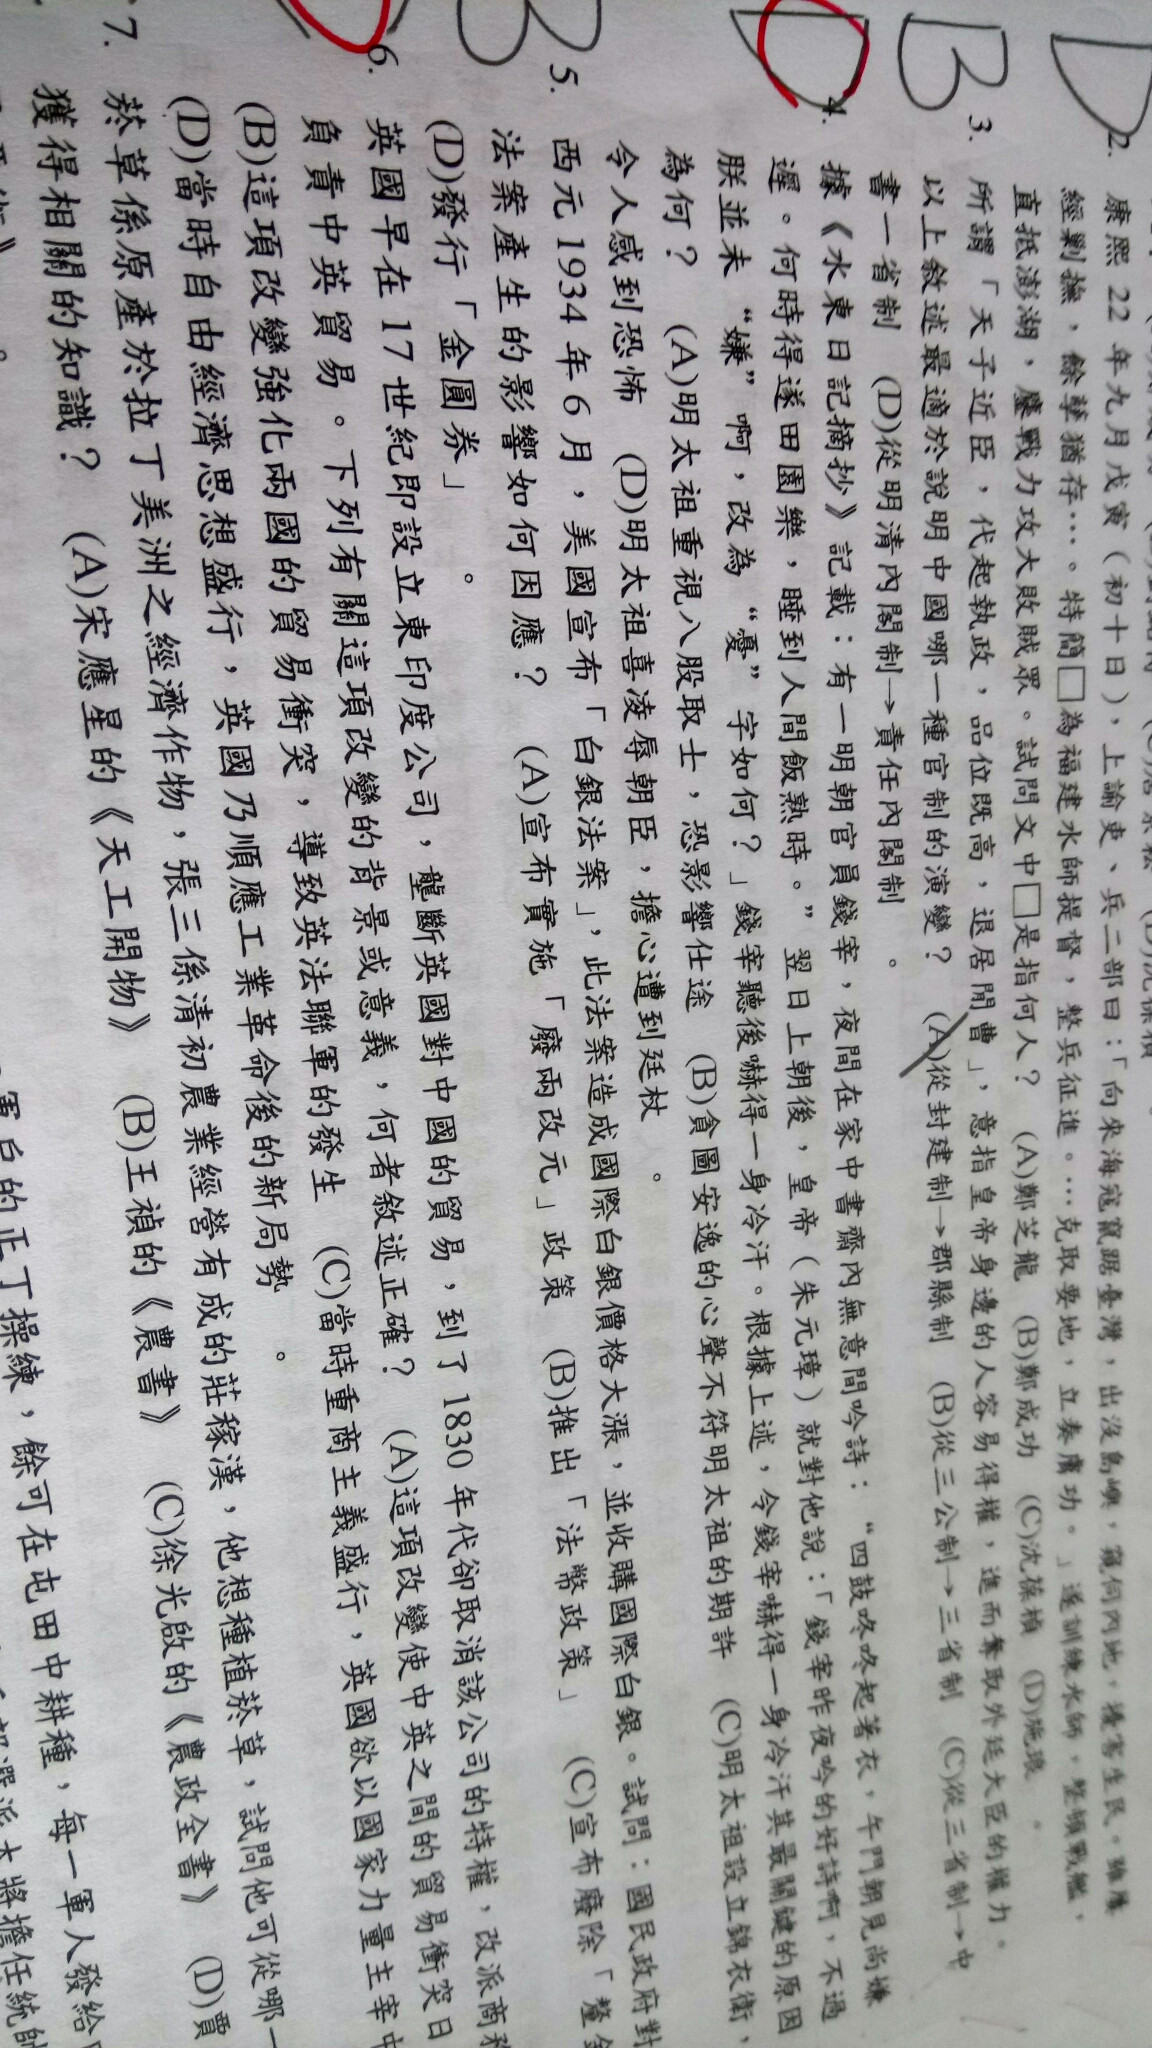 D
2. 康熙 22 年九月戊寅（初十日），上諭吏、兵二部曰：「向來海寇竄踞臺灣，出沒島嶼，窺伺內地，擾害生民。雖屢
經剿撫，餘孽猶存…。特簡□為福建水師提督，整兵征進。…克取要地，立奏膚功。」遂訓練水師，整頓戰艦，
直抵澎湖，鏖戰力攻大敗賊眾。試問文中□是指何人？ (A)鄭芝龍 (B)鄭成功 (C)沈葆楨 (D)施琅 。
B
3. 所謂「天子近臣，代起執政，品位既高，退居閒曹」，意指皇帝身邊的人容易得權，進而奪取外廷大臣的權力。
以上敘述最適於說明中國哪一種官制的演變？ (A)從封建制→郡縣制 (B)從三公制→三省制 (C)從三省制→中
書一省制 (D)從明清內閣制→責任內閣制 。
4. 據《水東日記摘抄》記載：有一明朝官員錢宰，夜間在家中書齋內無意間吟詩：“四鼓咚咚起著衣，午門朝見尚嫌
遲。何時得遂田園樂，睡到人間飯熟時。”翌日上朝後，皇帝（朱元璋）就對他說：「錢宰昨夜吟的好詩啊，不過
朕並未“嫌”啊，改為“憂”字如何？」錢宰聽後嚇得一身冷汗。根據上述，令錢宰嚇得一身冷汗其最關鍵的原因
為何？ (A)明太祖重視八股取士，恐影響仕途 (B)貪圖安逸的心聲不符明太祖的期許 (C)明太祖設立錦衣衛，
令人感到恐怖 (D)明太祖喜凌辱朝臣，擔心遭到廷杖 。
B
5. 西元 1934 年 6 月，美國宣布「白銀法案」，此法案造成國際白銀價格大漲，並收購國際白銀。試問：國民政府對
法案產生的影響如何因應？ (A)宣布實施「廢兩改元」政策 (B)推出「法幣政策」 (C)宣布廢除「釐金
(D)發行「金圓券」 。
6. 英國早在 17 世紀即設立東印度公司，壟斷英國對中國的貿易，到了 1830 年代卻取消該公司的特權，改派商務
負責中英貿易。下列有關這項改變的背景或意義，何者敘述正確？ (A)這項改變使中英之間的貿易衝突日
(B)這項改變強化兩國的貿易衝突，導致英法聯軍的發生 (C)當時重商主義盛行，英國欲以國家力量主宰中
(D)當時自由經濟思想盛行，英國乃順應工業革命後的新局勢 。
7. 菸草係原產於拉丁美洲之經濟作物，張三係清初農業經營有成的莊稼漢，他想種植菸草，試問他可從哪一
獲得相關的知識？ (A)宋應星的《天工開物》 (B)王禎的《農書》 (C)徐光啟的《農政全書》 (D)賈
軍台的正丁操練，餘可在屯田中耕種，每一軍人發給